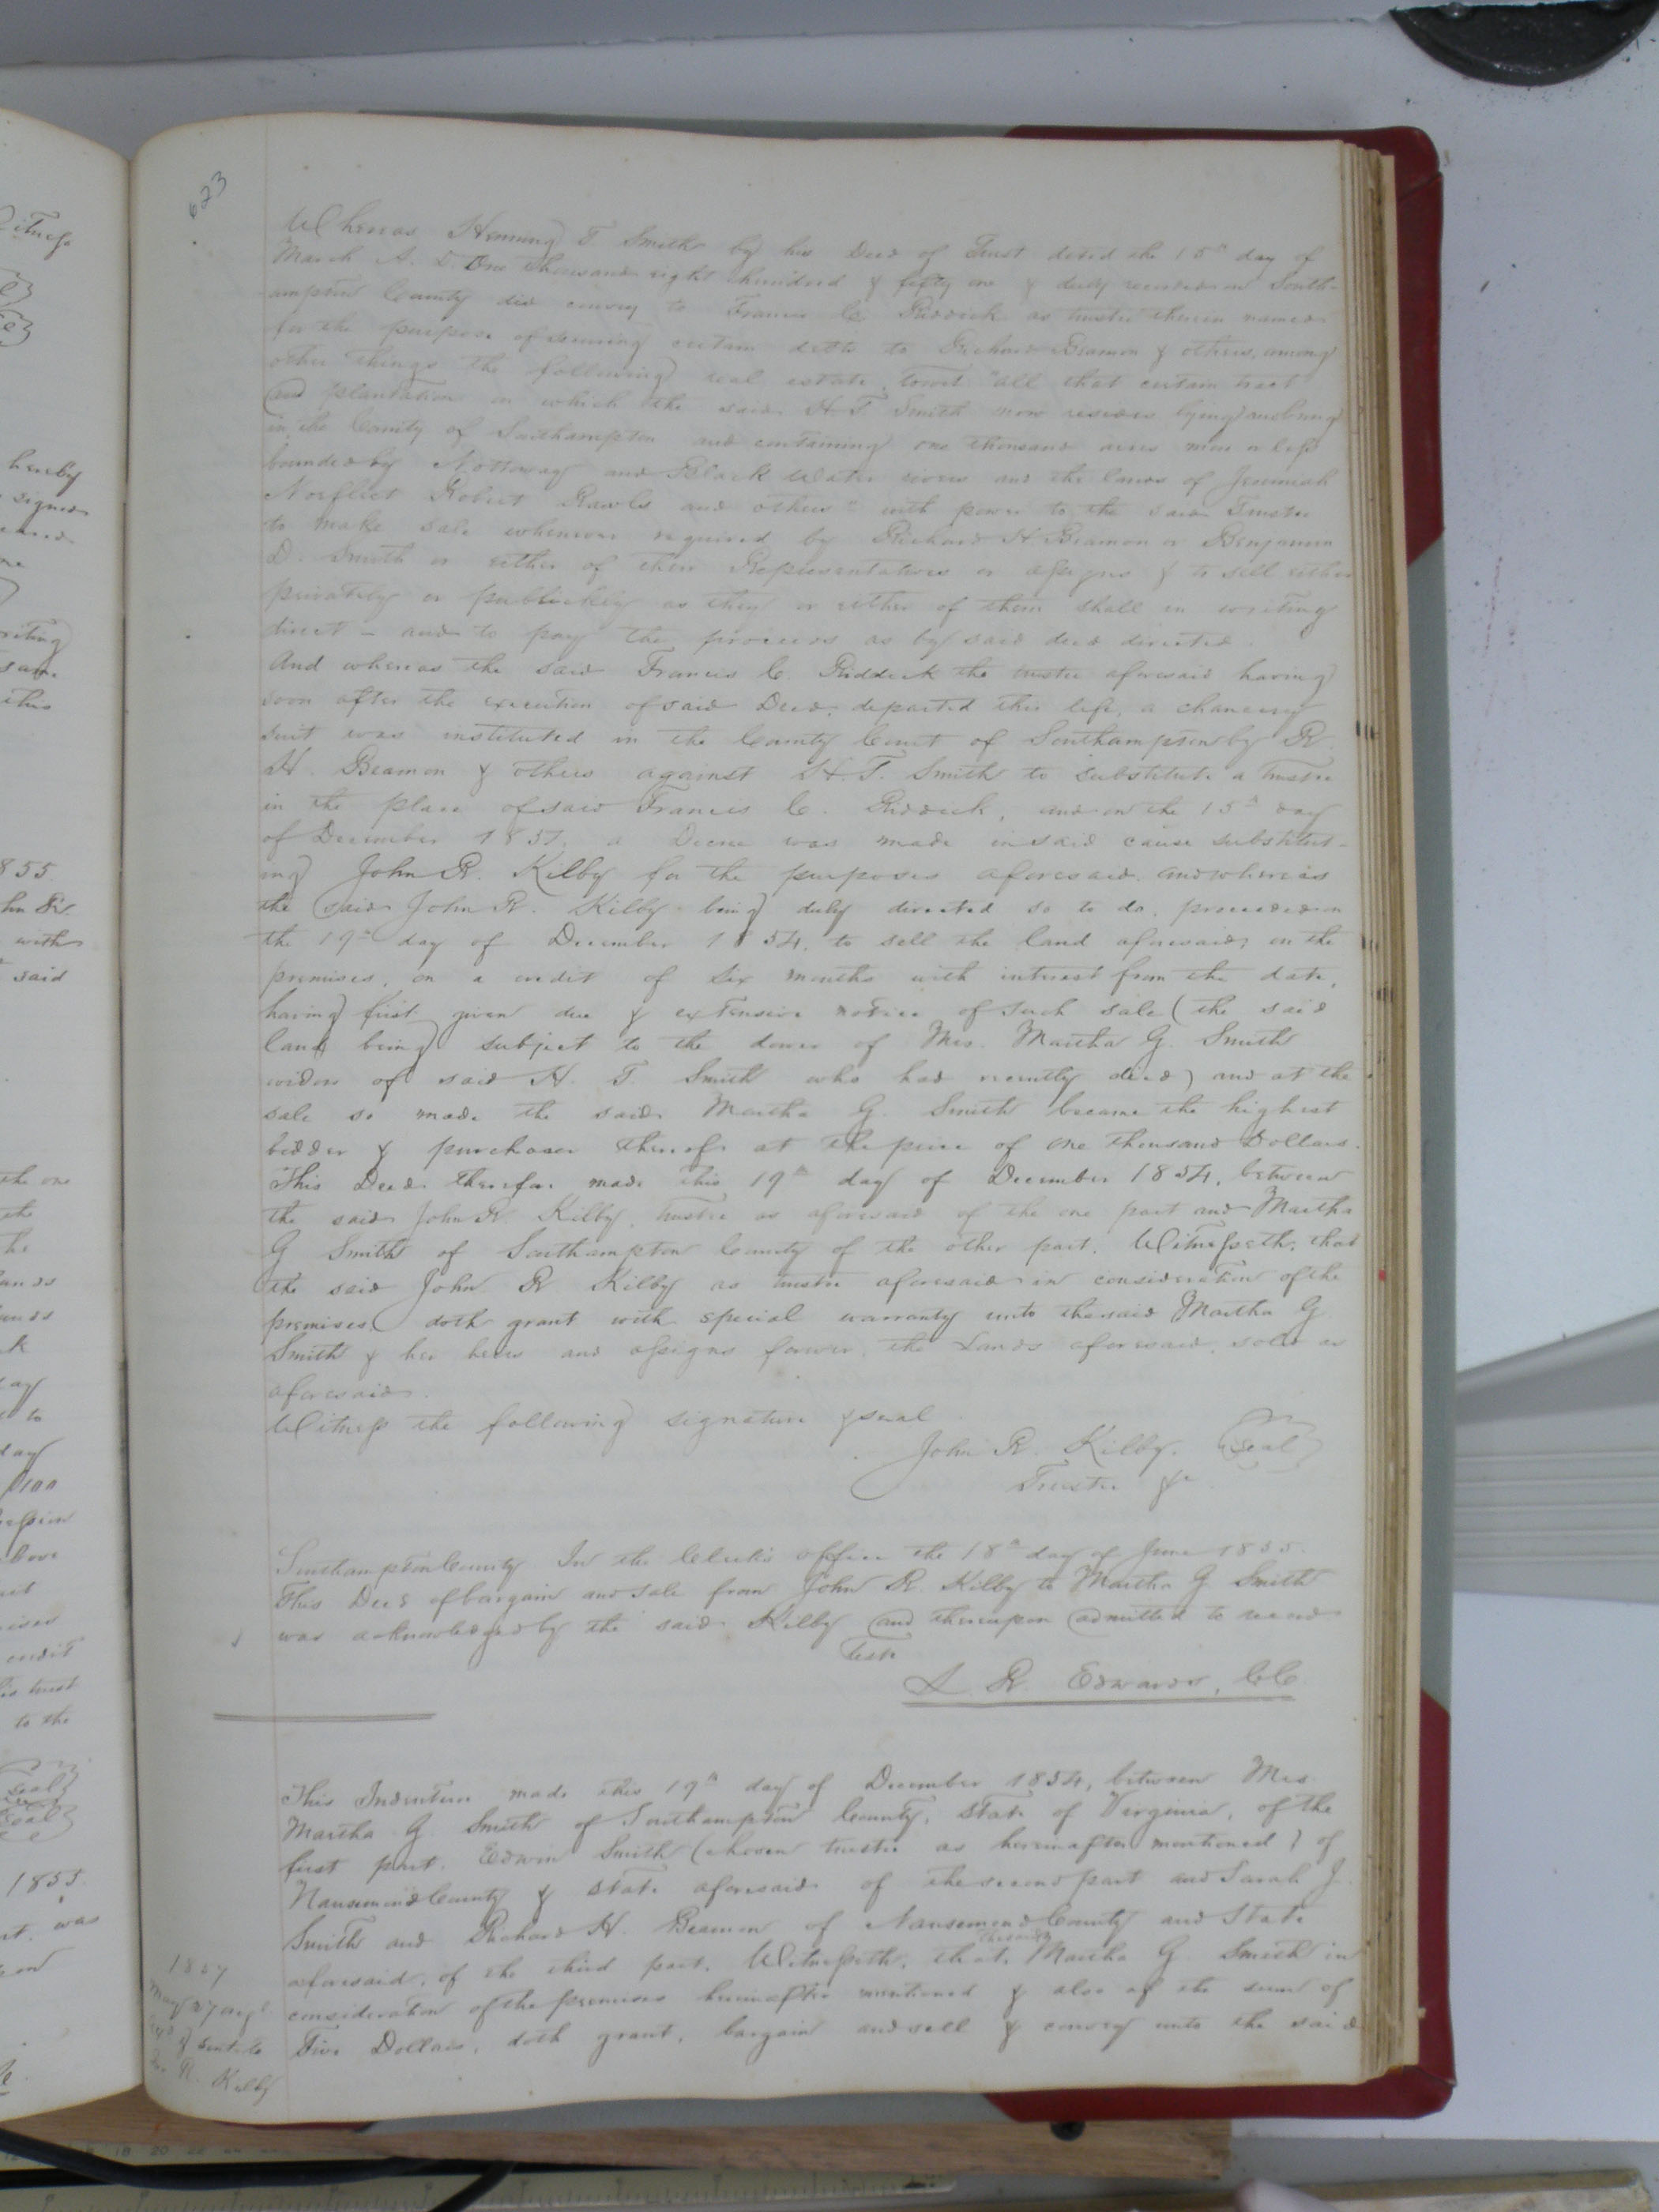 623
Whereas Henning T Smith by his Deed of Trust dated the 15th day of
March A. D. One thousand eight hundred & fifty one & duly recorded in South-
ampton County did convey to Francis C. Riddick as trustee therein named
for the purpose of securing certain debts to Richard Beamon & others, among
other things the following real estate, towit "all that certain tract
and plantation on which the said H T Smith now resides lying and being
in the County of Southampton and containing one thousand acres more or less
bounded by Nottoway and Black Water rivers and the lands of Jeremiah
Norfleet Robert Rawls and others" with power to the said Trustee
to make sale whenever required by Richard H Beamon or Benjamin
D. Smith or either of their Representatives or assigns & to sell either
privately or publickly as they or either of them shall in writing
direct - and to pay the proceeds as by said deed directed.
And whereas the said Francis C. Riddick the trustee aforesaid having
soon after the execution of said Deed, departed this life, a chancery
suit was instituted in the County Court of Southampton by R.
H. Beamon & others against H. T. Smith to substitute a trustee
in the place of said Francis C. Riddick, and on the 15th day
of December 1851, a Decree was made in said cause substitut-
ing John R. Kilby for the purposes aforesaid. and whereas
the said John R. Kilby being duly directed so to do, proceeded on
the 19th day of December 1854, to sell the land aforesaid, on the
premises, on a credit of six months with interest from the date,
having first given due & extensive notice of such sale (the said
land being subject to the dower of Mrs. Martha G. Smith
widow of said H. T. Smith who had recently died) and at the
sale so made the said Martha G. Smith became the highest
bidder & purchaser thereof at the price of one thousand Dollars.
This Deed therefore made this 19th day of December 1854, between
the said John R. Kilby, trustee as aforesaid of the one part and Martha
G Smith of Southampton County of the other part. Witnesseth, that
the said John R Kilby as trustee aforesaid in consideration of the
premises, doth grant with special warranty unto the said Martha G.
Smith & her heirs and assigns forever, the Lands aforesaid, sold as
aforesaid.
Witness the following signature & seal
John R. Kilby. (Seal)
Trustee &c
Southampton County In the Clerk's office the 18th day of June 1855.
This Deed of bargain and sale from John R. Kilby to Martha G Smith
was acknowledged by the said Kilby and thereupon admitted to record
Teste
L. R. Edwards, C.C.
This Indenture made this 19th day of December 1854, between Mrs.
Martha G. Smith of Southampton County, State of Virginia, of the
first part. Edwin Smith (chosen trustee as hereinafter mentioned) of
Nansemond County & State aforesaid of the second part and Sarah J.
Smith and Richard H. Beamon of Nansemond County and State
aforesaid, of the third part. Witnesseth, that, the said Martha G. Smith in
consideration of the premises hereinafter mentioned & also of the sum of
Five Dollars, doth grant, bargain and sell & convey unto the said
1857
May 27
& sent to
R. Kilby